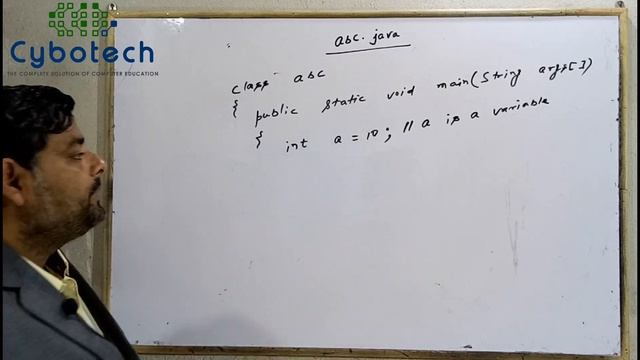 Cybotech
THE COMPLETE SOLUTION OF COMPUTER EDUCATION
abc.java
class abc
{ public static void main(String args[])
{ int a = 10; // a is a variable